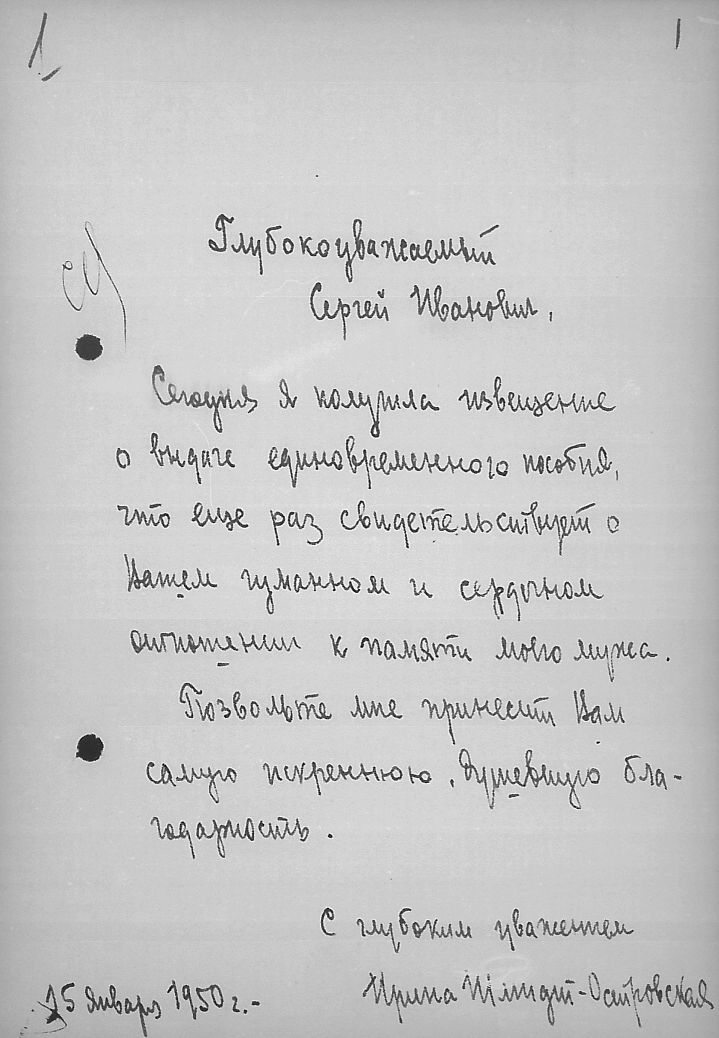 1
1
Глубокоуважаемый
Сергей Иванович,
Сегодня я получила извещение
о выдаче единовременного пособия,
что еще раз свидетельствует о
Вашем гуманном и сердечном
отношении к памяти моего мужа.
Позвольте мне принести Вам
самую искреннюю, душевную бла-
годарность.
С глубоким уважением
15 января 1950 г.- Ирина Шмидт-Островская